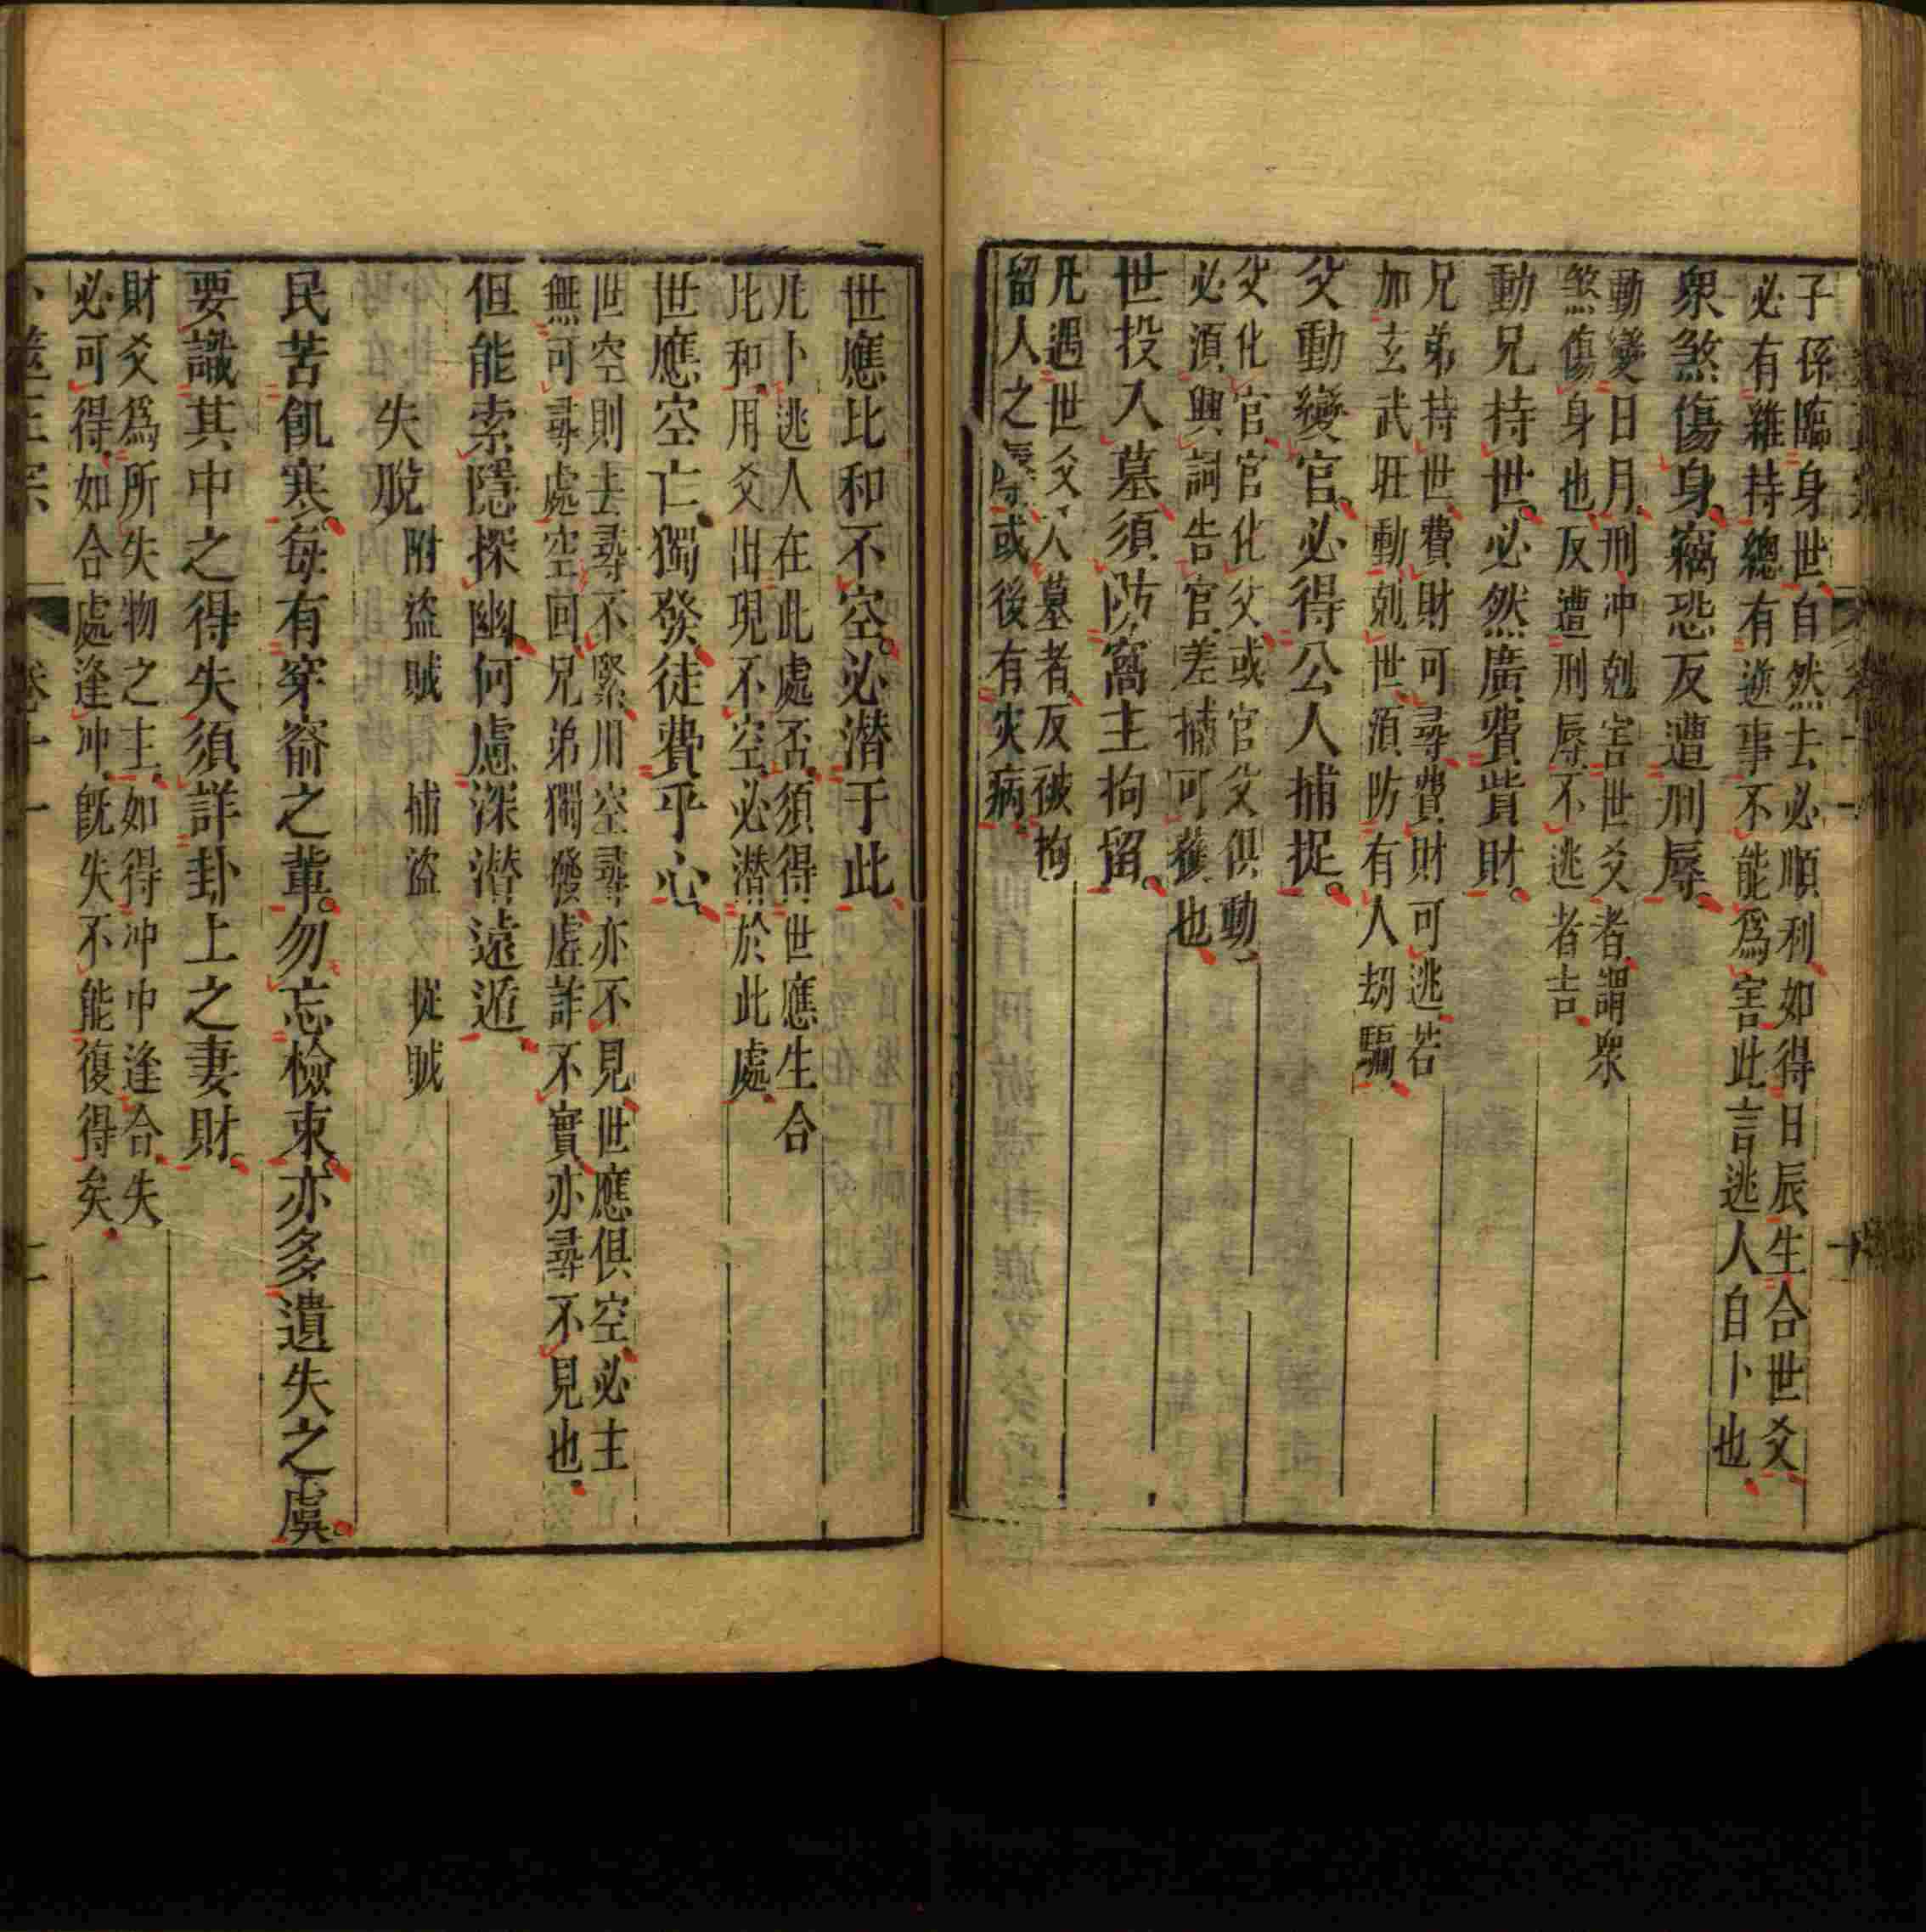 子孫臨身世自然去必順利如得日辰生合世爻
必有雜持總有逆事不能爲害此言逃人自卜也
衆煞傷身竊恐反遭刑辱
動變日月刑冲剋害世爻者謂衆
煞傷身也反遭刑辱不逃者吉
動兄持世必然廣費貲財
兄弟持世費財可尋費財可逃若
加玄武旺動剋世須防有人刼騙
父動變官必得公人捕捉
父化官官化父或官父俱動
必須興詞告官差捕可獲也
世投入墓須防窩主拘留
凡遇世爻入墓者反被拘
留人之辱或後有灾病
世應比和不空必潜于此
凡卜逃人在此處否須得世應生合
比和用爻出現不空必潜於此處
世應空亡獨發徒費乎心
世空則去尋不緊用空尋亦不見世應俱空必主
無可尋處空回兄弟獨發虛詐不實亦尋不見也
但能索隱探幽何慮深潜遠遁
失脫 附盜賊 捕盜 捉賊
民苦飢寒每有穿窬之輩勿忘檢束亦多遺失之虞
要識其中之得失須詳卦上之妻財
財爻爲所失物之主如得冲中逢合失
必可得如合處逢冲旣失不能復得矣
卷十一